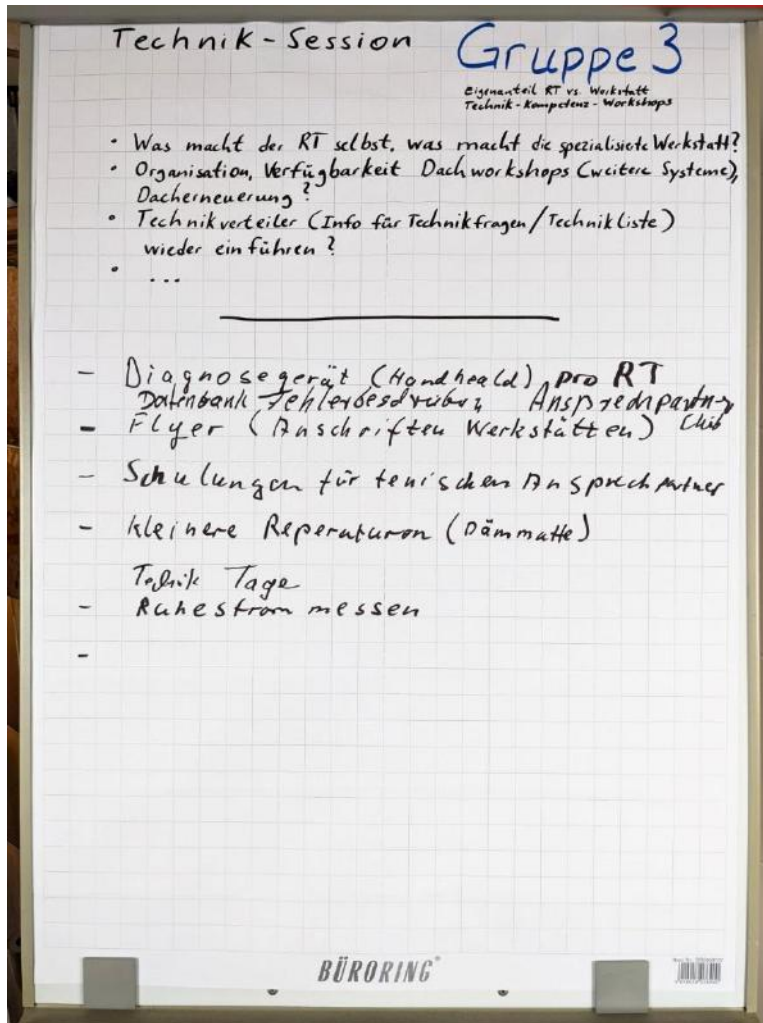 Technik-Session
Gruppe 3
Eigenanteil RT vs. Werkstatt
Technik-Kompetenz-Workshops
• Was macht der RT selbst, was macht die spezialisierte Werkstatt?
• Organisation, Verfügbarkeit Dachworkshops (weitere Systeme),
Dacherneuerung?
• Technikverteiler (Info für Technikfragen/Technikliste)
wieder einführen?
• ...
- Diagnosegerät (Handheald) pro RT
Datenbank Ansprechpartner
- Flyer (Anschriften Werkstätten) Club
- Schulungen für tenischen Ansprechpartner
- kleinere Reperaturen (Dämmatte)
Technik Tage
- Ruhestrom messen
-
BÜRORING